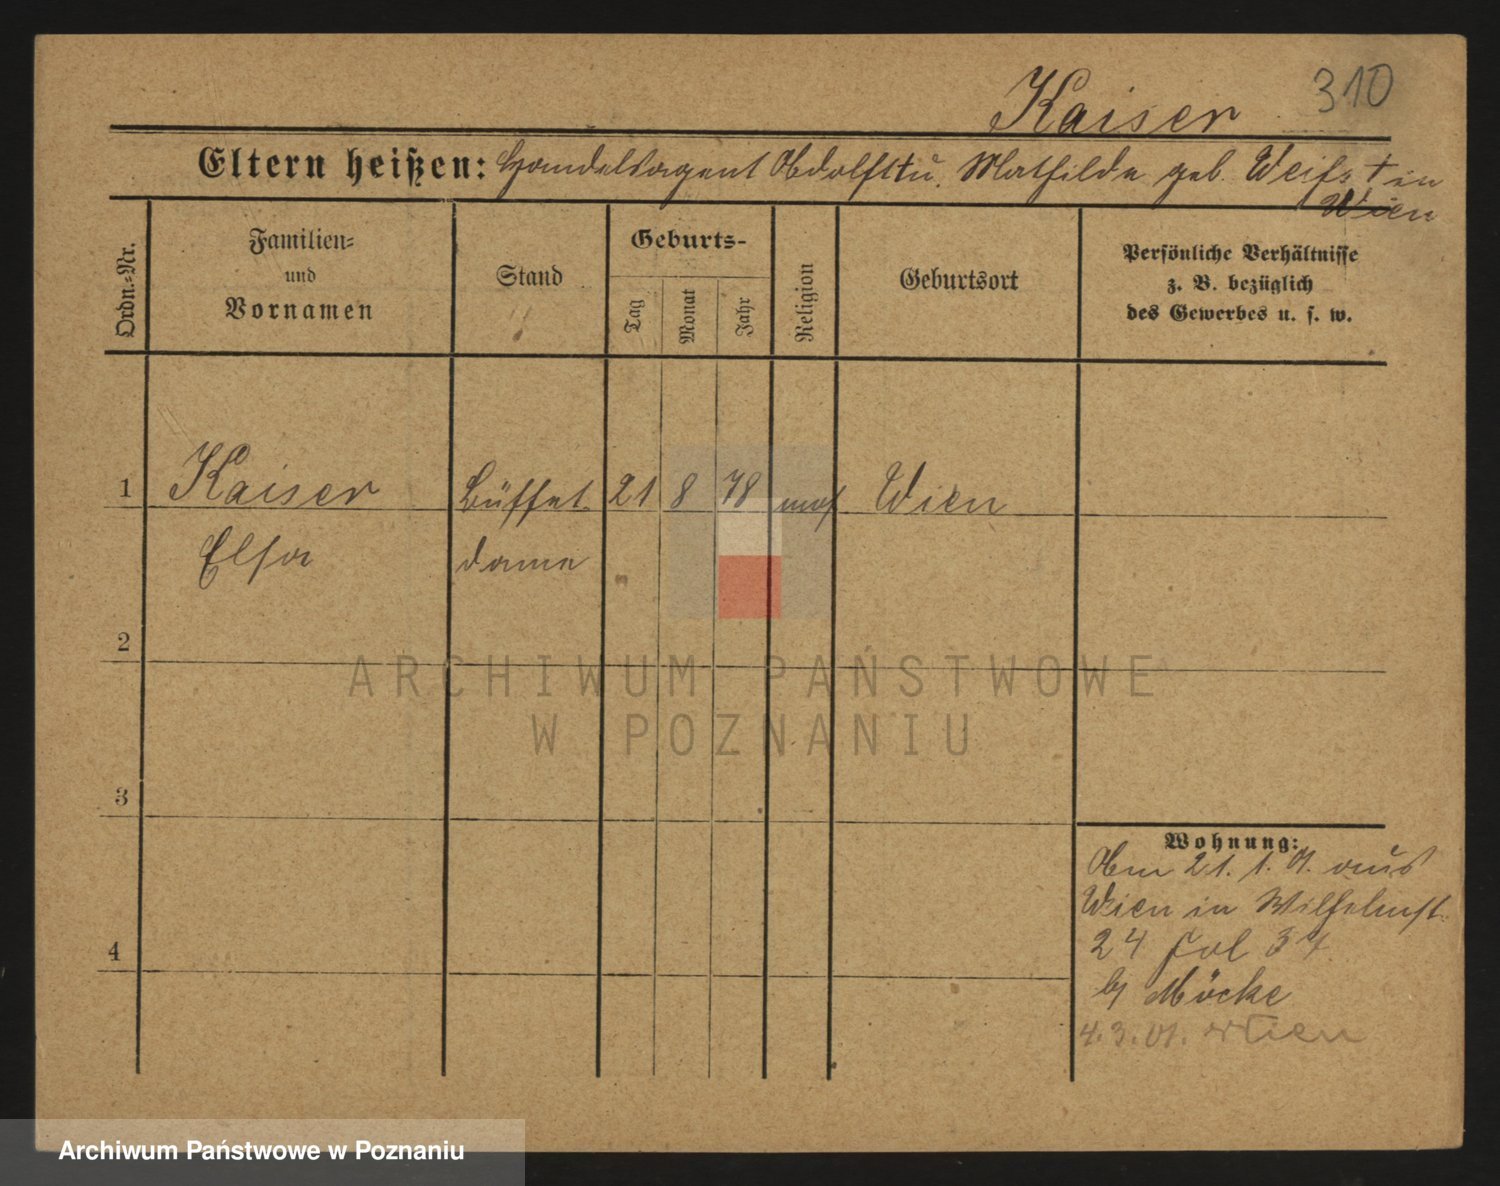 310
Kaiser
Eltern heißen: Handelsagent Adolf † u. Mathilde geb. Weiß † in
Wien
Ordn.-Nr.
Familien-
und
Vornamen
Stand
Geburts-
Tag
Monat
Jahr
Religion
Geburtsort
Persönliche Verhältnisse
z. B. bezüglich
des Gewerbes u. s. w.
1 Kaiser Büffet- 21 8 78 mos Wien
Elsa dame
2
3
4
Wohnung:
Am 21. 1. 01. aus
Wien in Wilhelmst.
24 Fol 34
by Möcke
4. 3. 01. Wien
ARCHIWUM PAŃSTWOWE
W POZNANIU
Archiwum Państwowe w Poznaniu